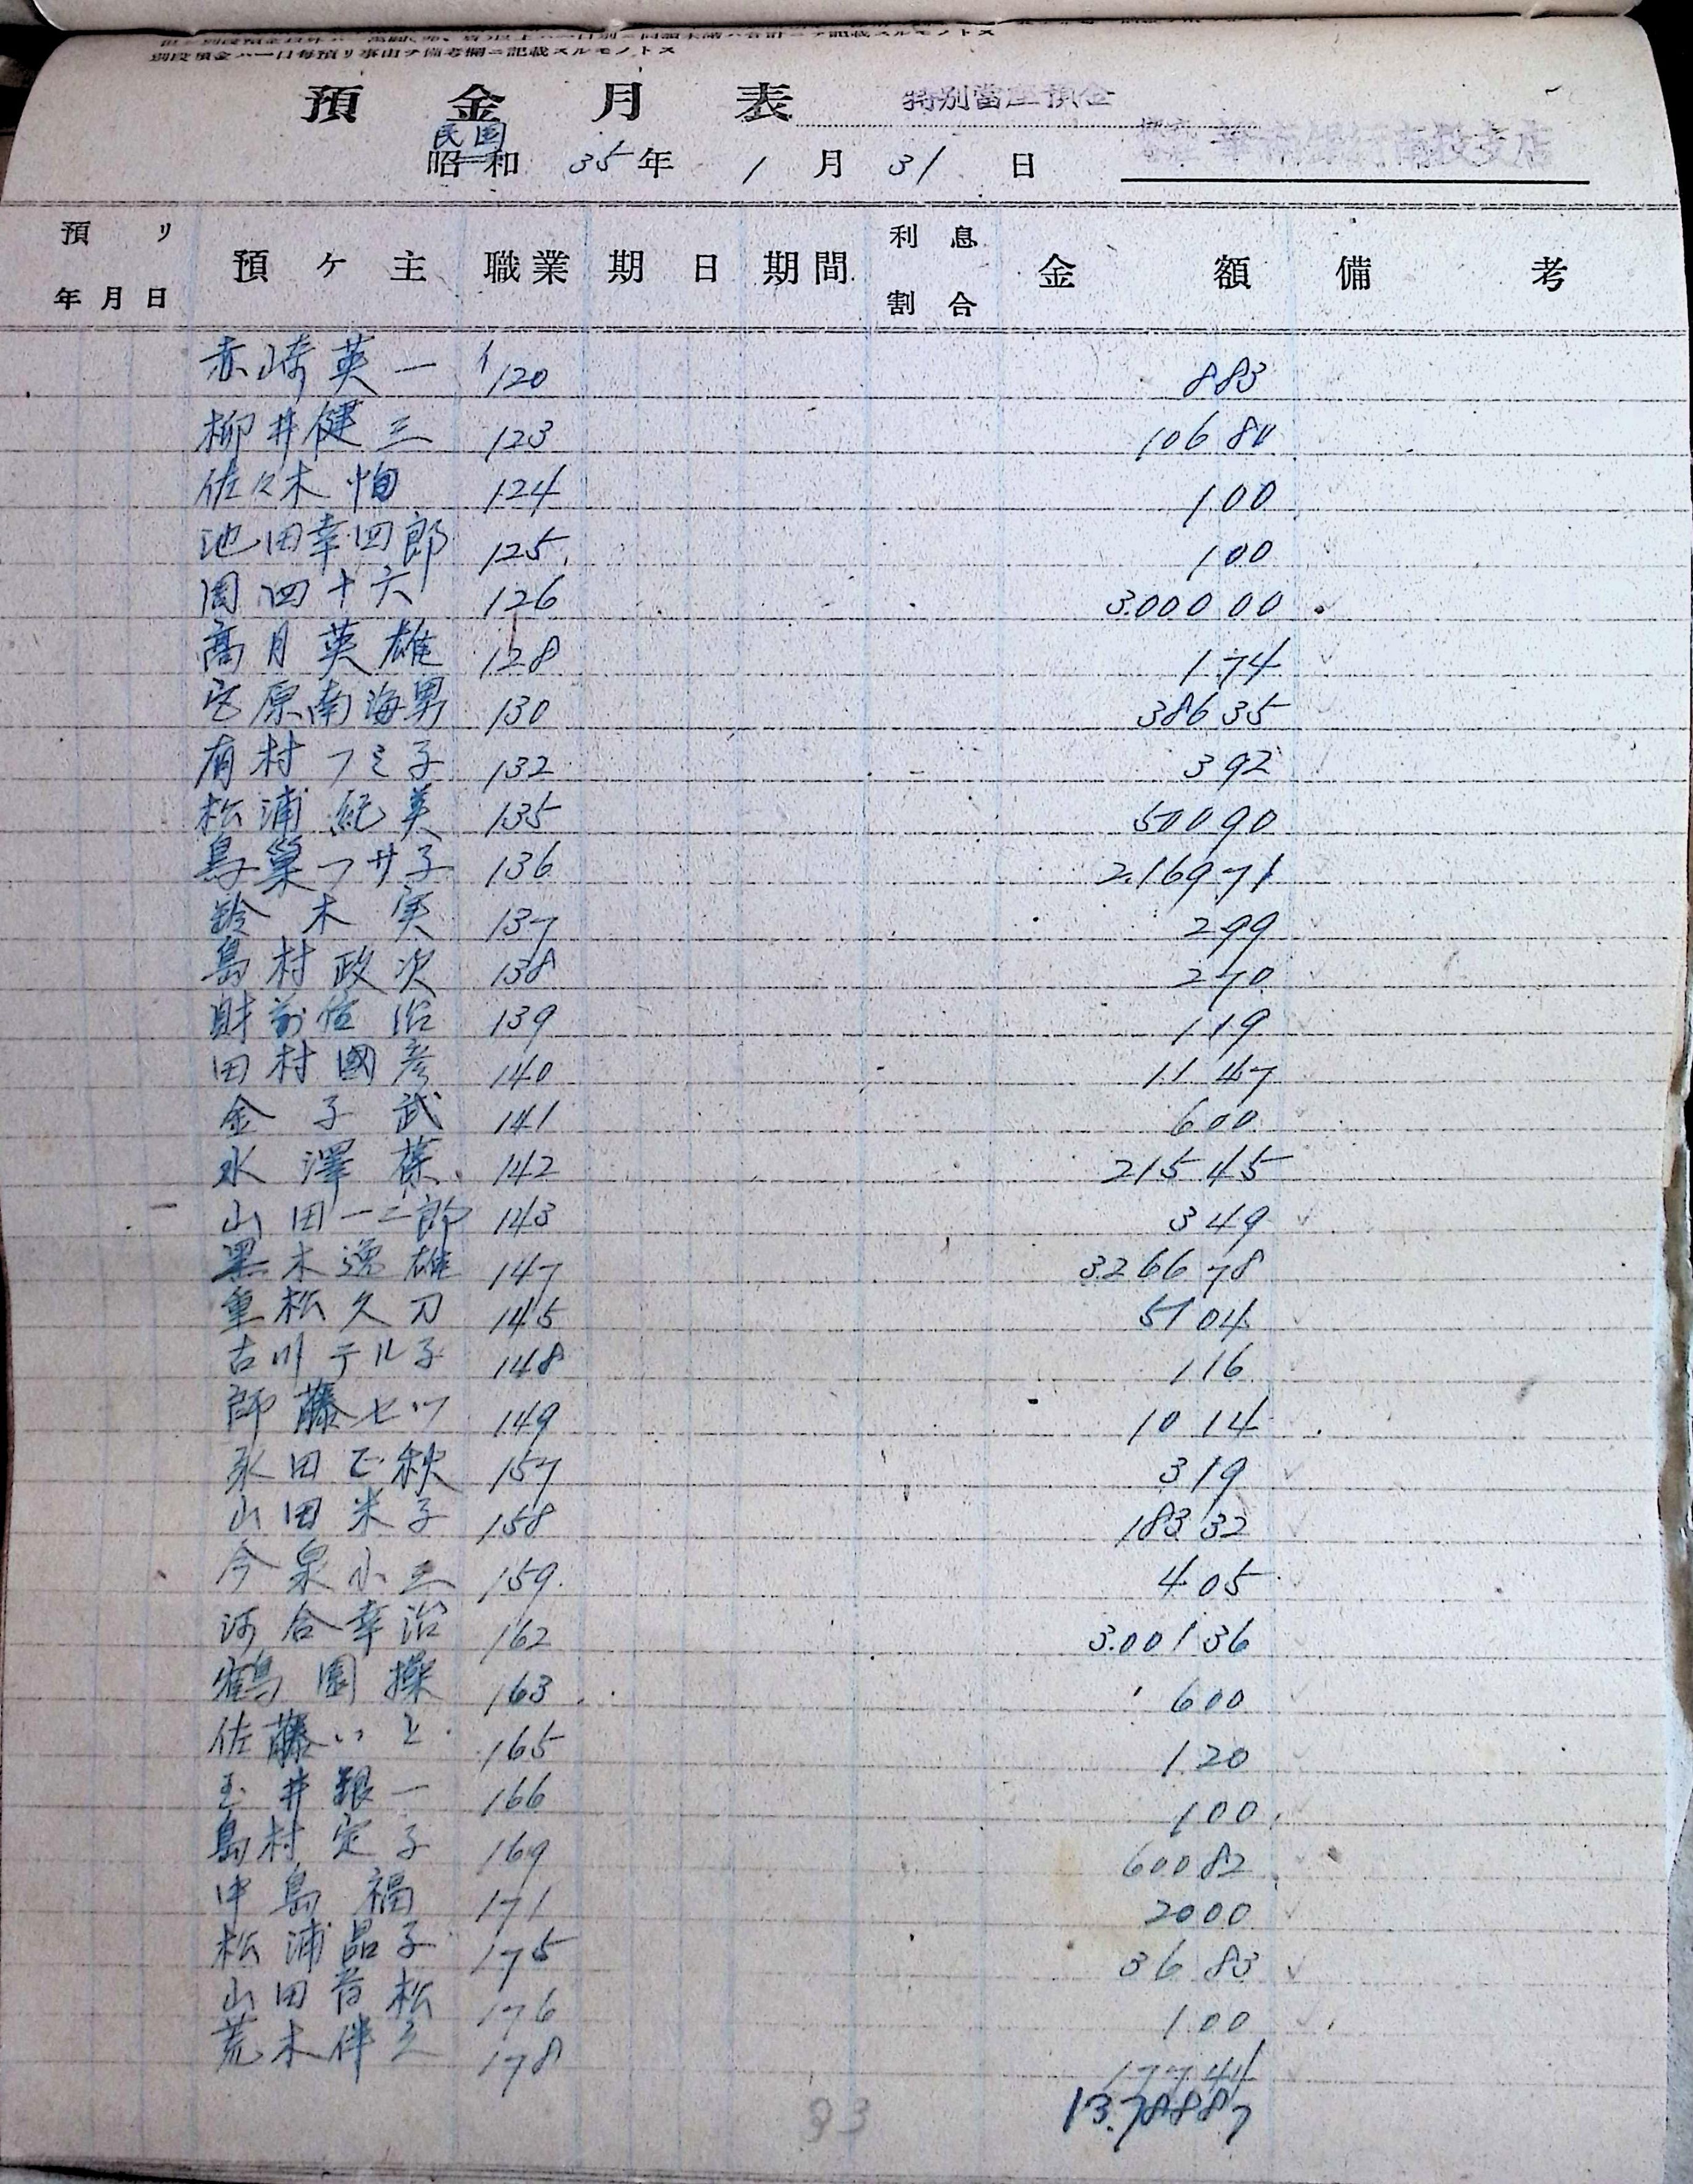 別段預金ハ一日每預リ事由ヲ備考欄ニ記載スルモノトス
預金月表 特別當座預金
民国
昭和 35年 1月31日 華南銀行南投支店
預リ年月日 預ケ主 職業 期日 期間 利息割合 金額 備考
赤崎英一 1/120 883
柳井健三 123 106 80
佐々木 恒 124 1 00
池田幸四郎 125 1 00
周四十六 126 3.000 00
髙月英雄 128 1 74
宮原南海男 130 386 35
有村フミ子 132 3 92
松浦純英 135 500 90
鳥巣フサ子 136 2.169 71
鈴木実 137 2 99
島村政次 138 2 70
財前信治 139 1 19
田村國彦 140 11 47
金子武 141 6 00
水澤葆 142 215 45
山田一二郎 143 3 49
黒木逸雄 147 3.266 78
重松久刀 145 51 04
古川テル子 148 1 16
師藤セツ 149 10 14
永田正秋 157 3 19
山田米子 158 183 32
今泉小三 159 4 05
河合幸治 162 3.001 36
鶴園操 163 6 00
佐藤いと 165 1 20
玉井銀一 166 1 00
島村定子 169 600 82
中島福 171 20 00
松浦晶子 175 36 83
山田音松 176 1 00
荒木伴久 178 177 44
93 13.788 87